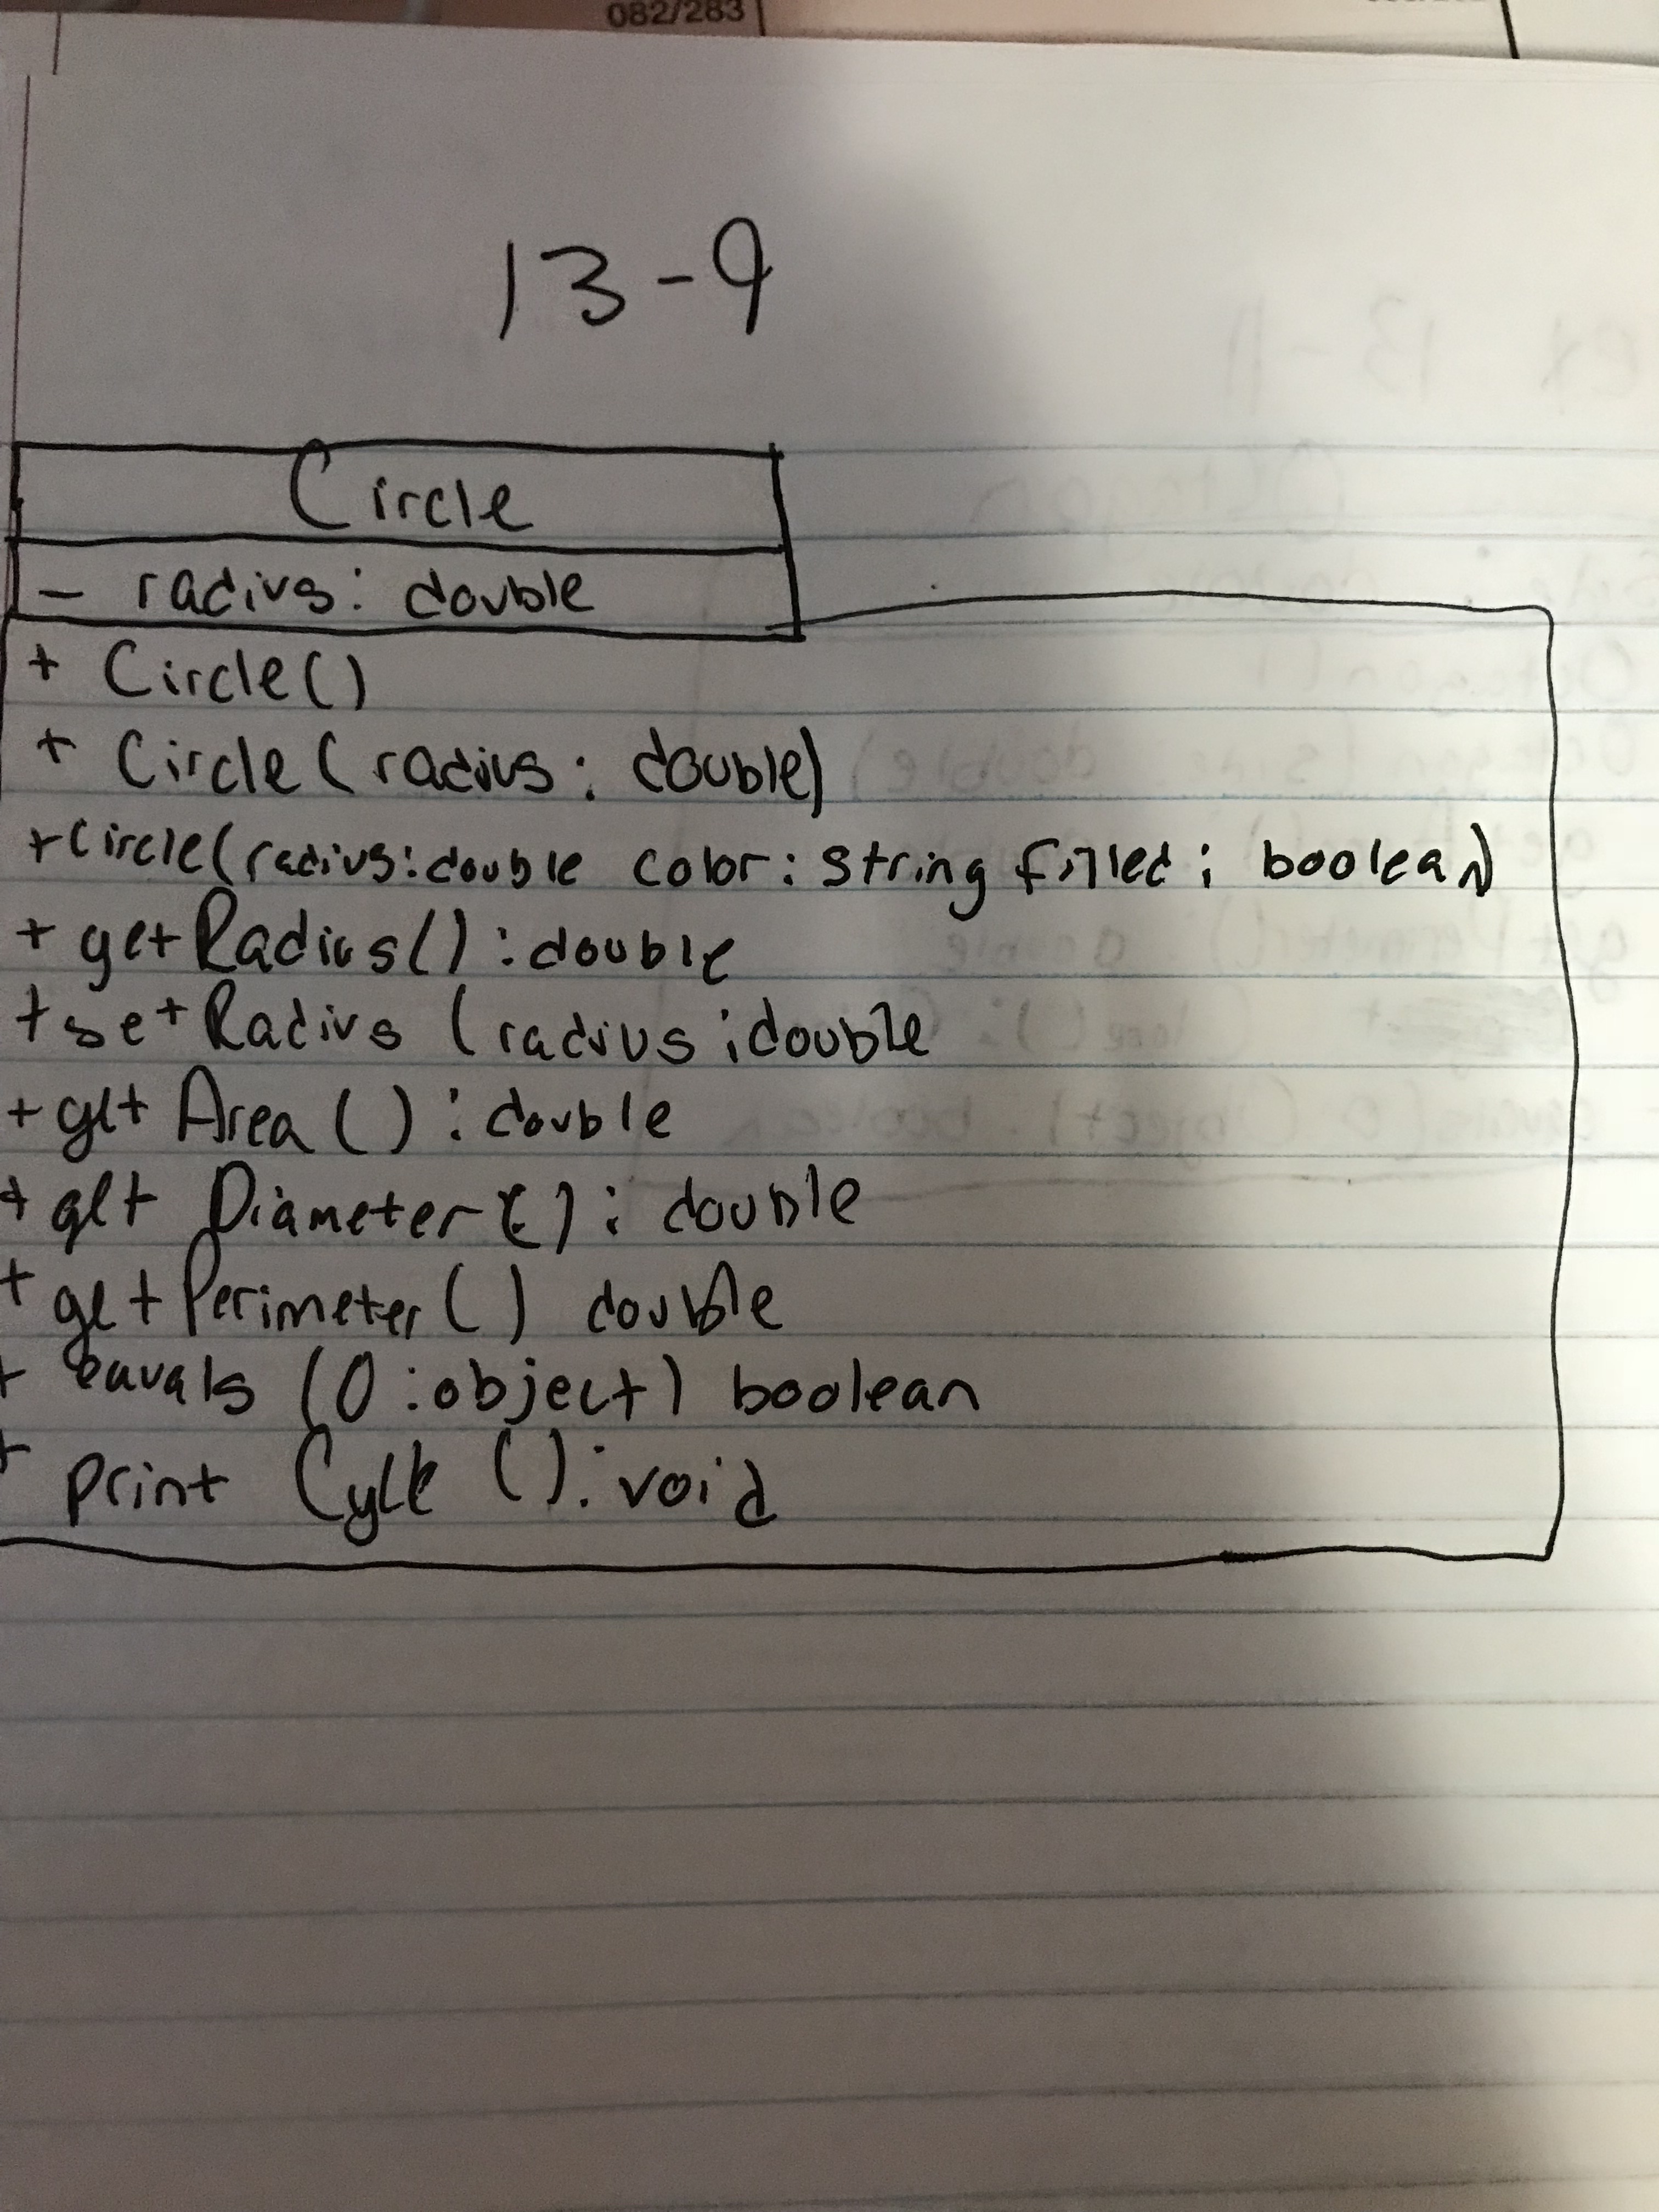 082/283
13-9
Circle
- radius: double
+ Circle()
+ Circle(radius: double)
+Circle(radius:double color: String filled: boolean)
+ getRadius(): double
+ set Radius (radius:double
+ get Area (): double
+ get Diameter(): double
+ get Perimeter() double
+ equals (O:object) boolean
+ print (): void